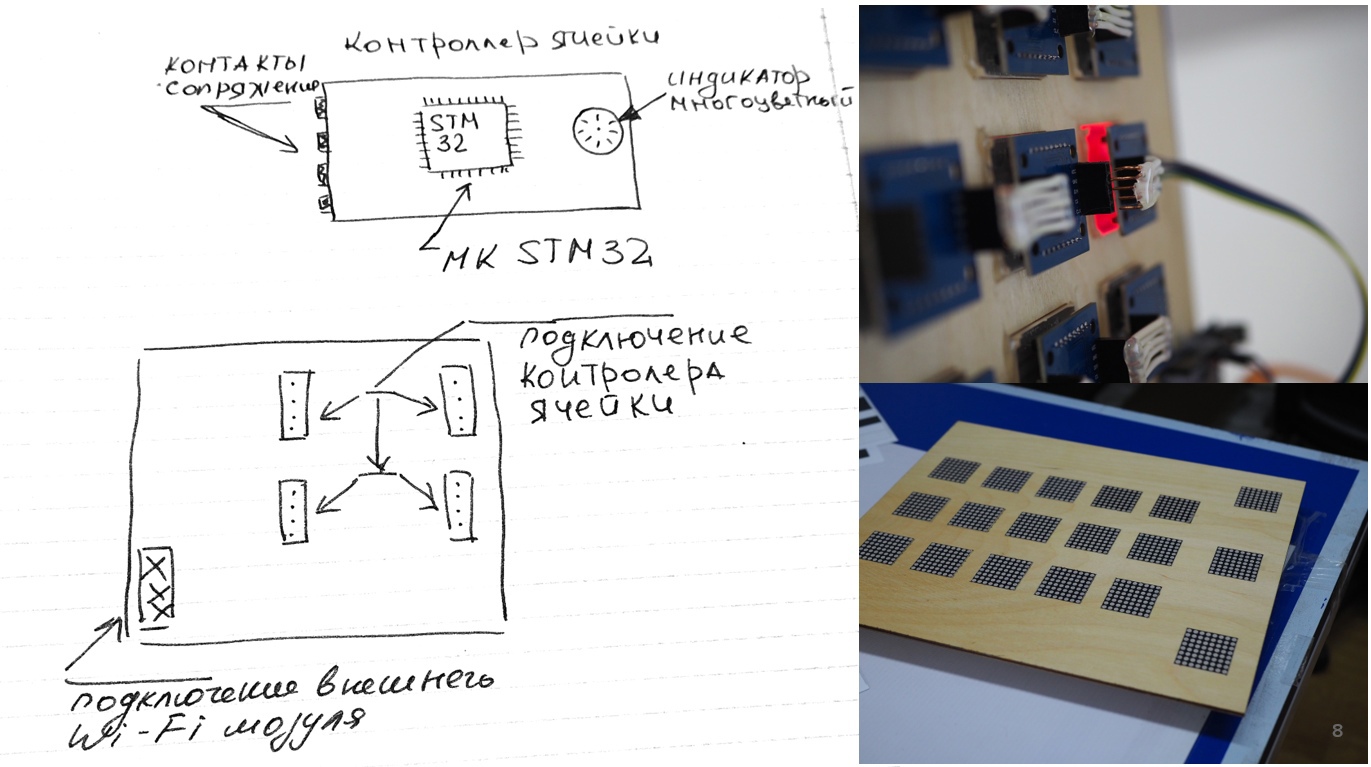 контроллер ячейки
контакты
сопряжение
индикатор
многоцветный
STM
32
МК STM32
подключение
контролера
ячейки
подключение внешнего
Wi-Fi модуля
8